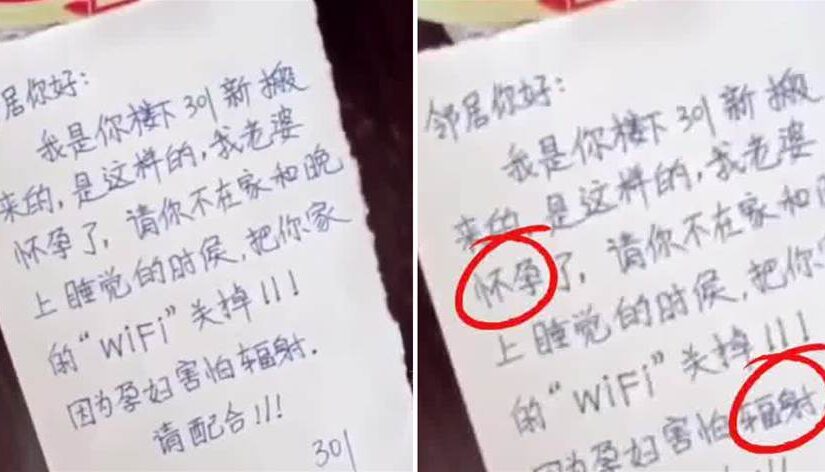 居你好:
我是你楼下301新搬
来的,是这样的,我老婆
怀孕了,请你不在家和晚
上睡觉的时侯,把你家
的“WiFi”关掉!!!
因为孕妇害怕辐射.
请配合!!!
301
邻居你好:
我是你楼下301新搬
来的,是这样的,我老婆
怀孕了,请你不在家和晚
上睡觉的时侯,把你家
的“WiFi”关掉!!!
因为孕妇害怕辐射.